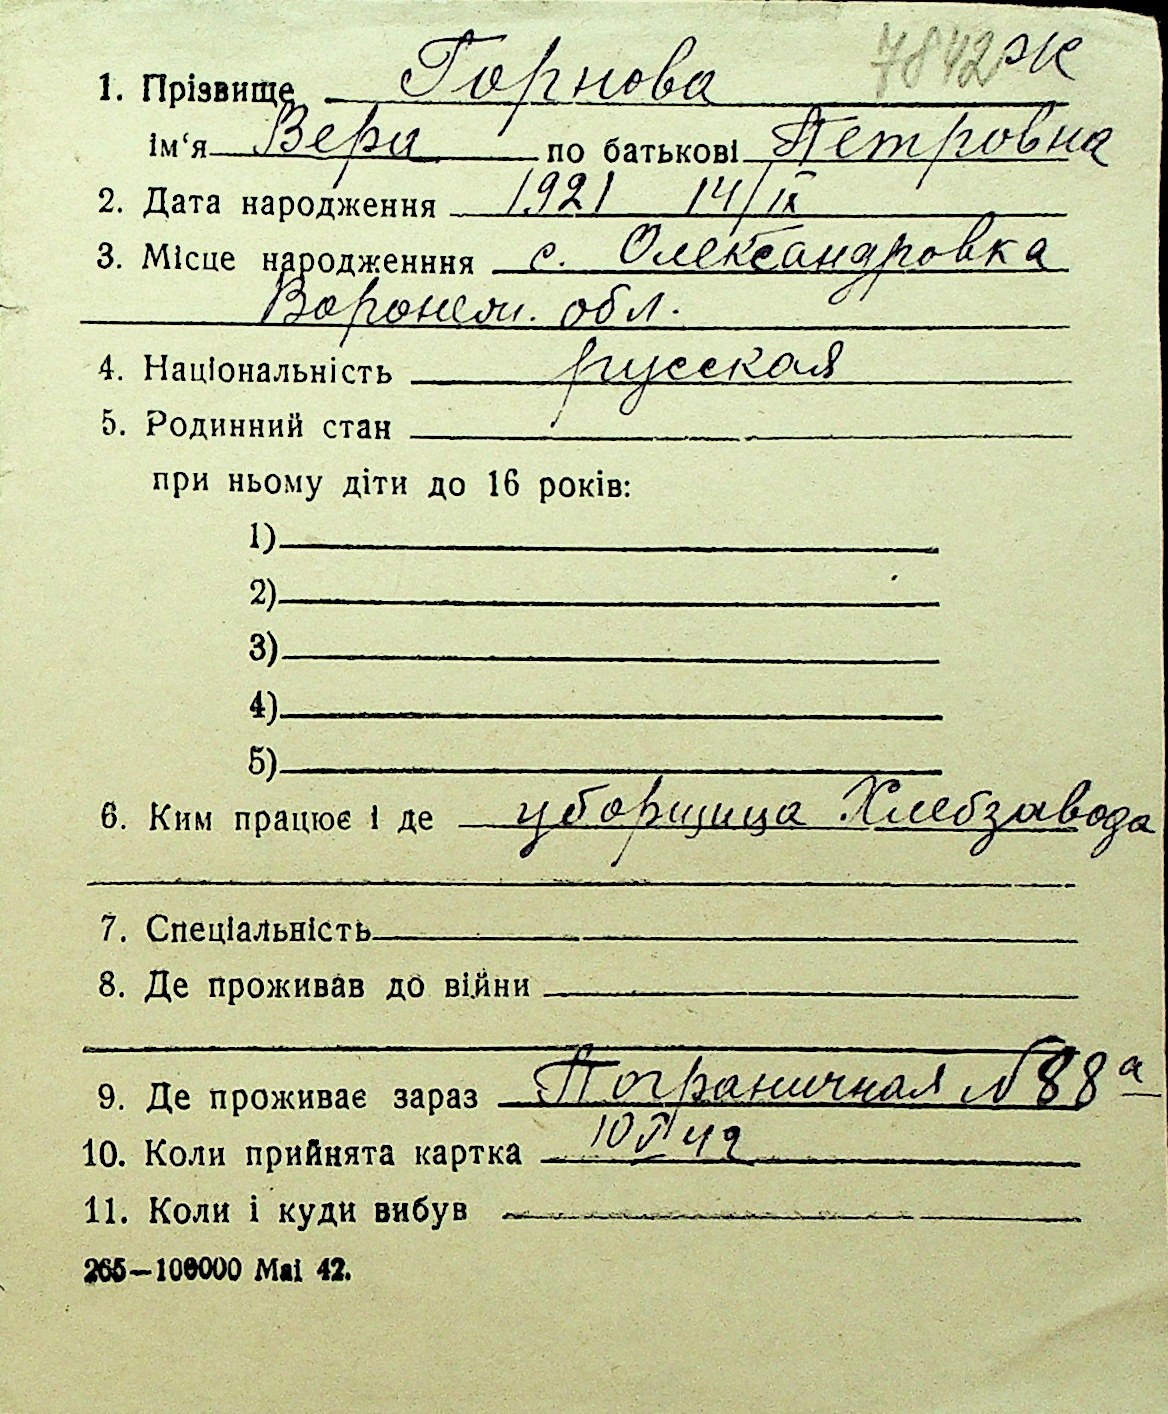 7842 Ж
1. Прізвище Горнова
ім‘я Вера по батькові Петровна
2. Дата народження 1921 14/IX
3. Місце народженння с. Олександровка
Воронеж. обл.
4. Національність русская
5. Родинний стан
при ньому діти до 16 років:
1)
2)
3)
4)
5)
6. Ким працює і де уборщица Хлебзавода
7. Спеціальність
8. Де проживав до війни
9. Де проживає зараз Пограничная № 88а
10. Коли прийнята картка 10 42
11. Коли і куди вибув
265—100000 Маі 42.